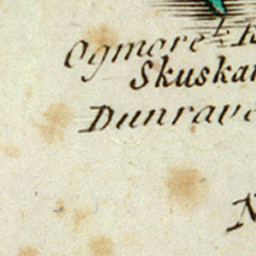 Ogmore
Skuskar
Dunrave
N